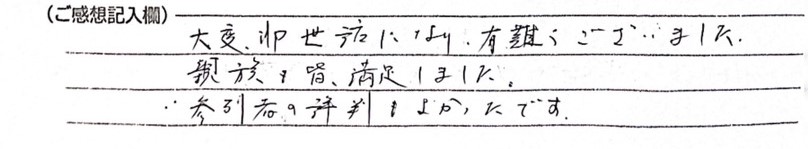 (ご感想記入欄)
大変、御世話になり、有難うございました。
親族も皆、満足しました。
参列者の評判もよかったです。